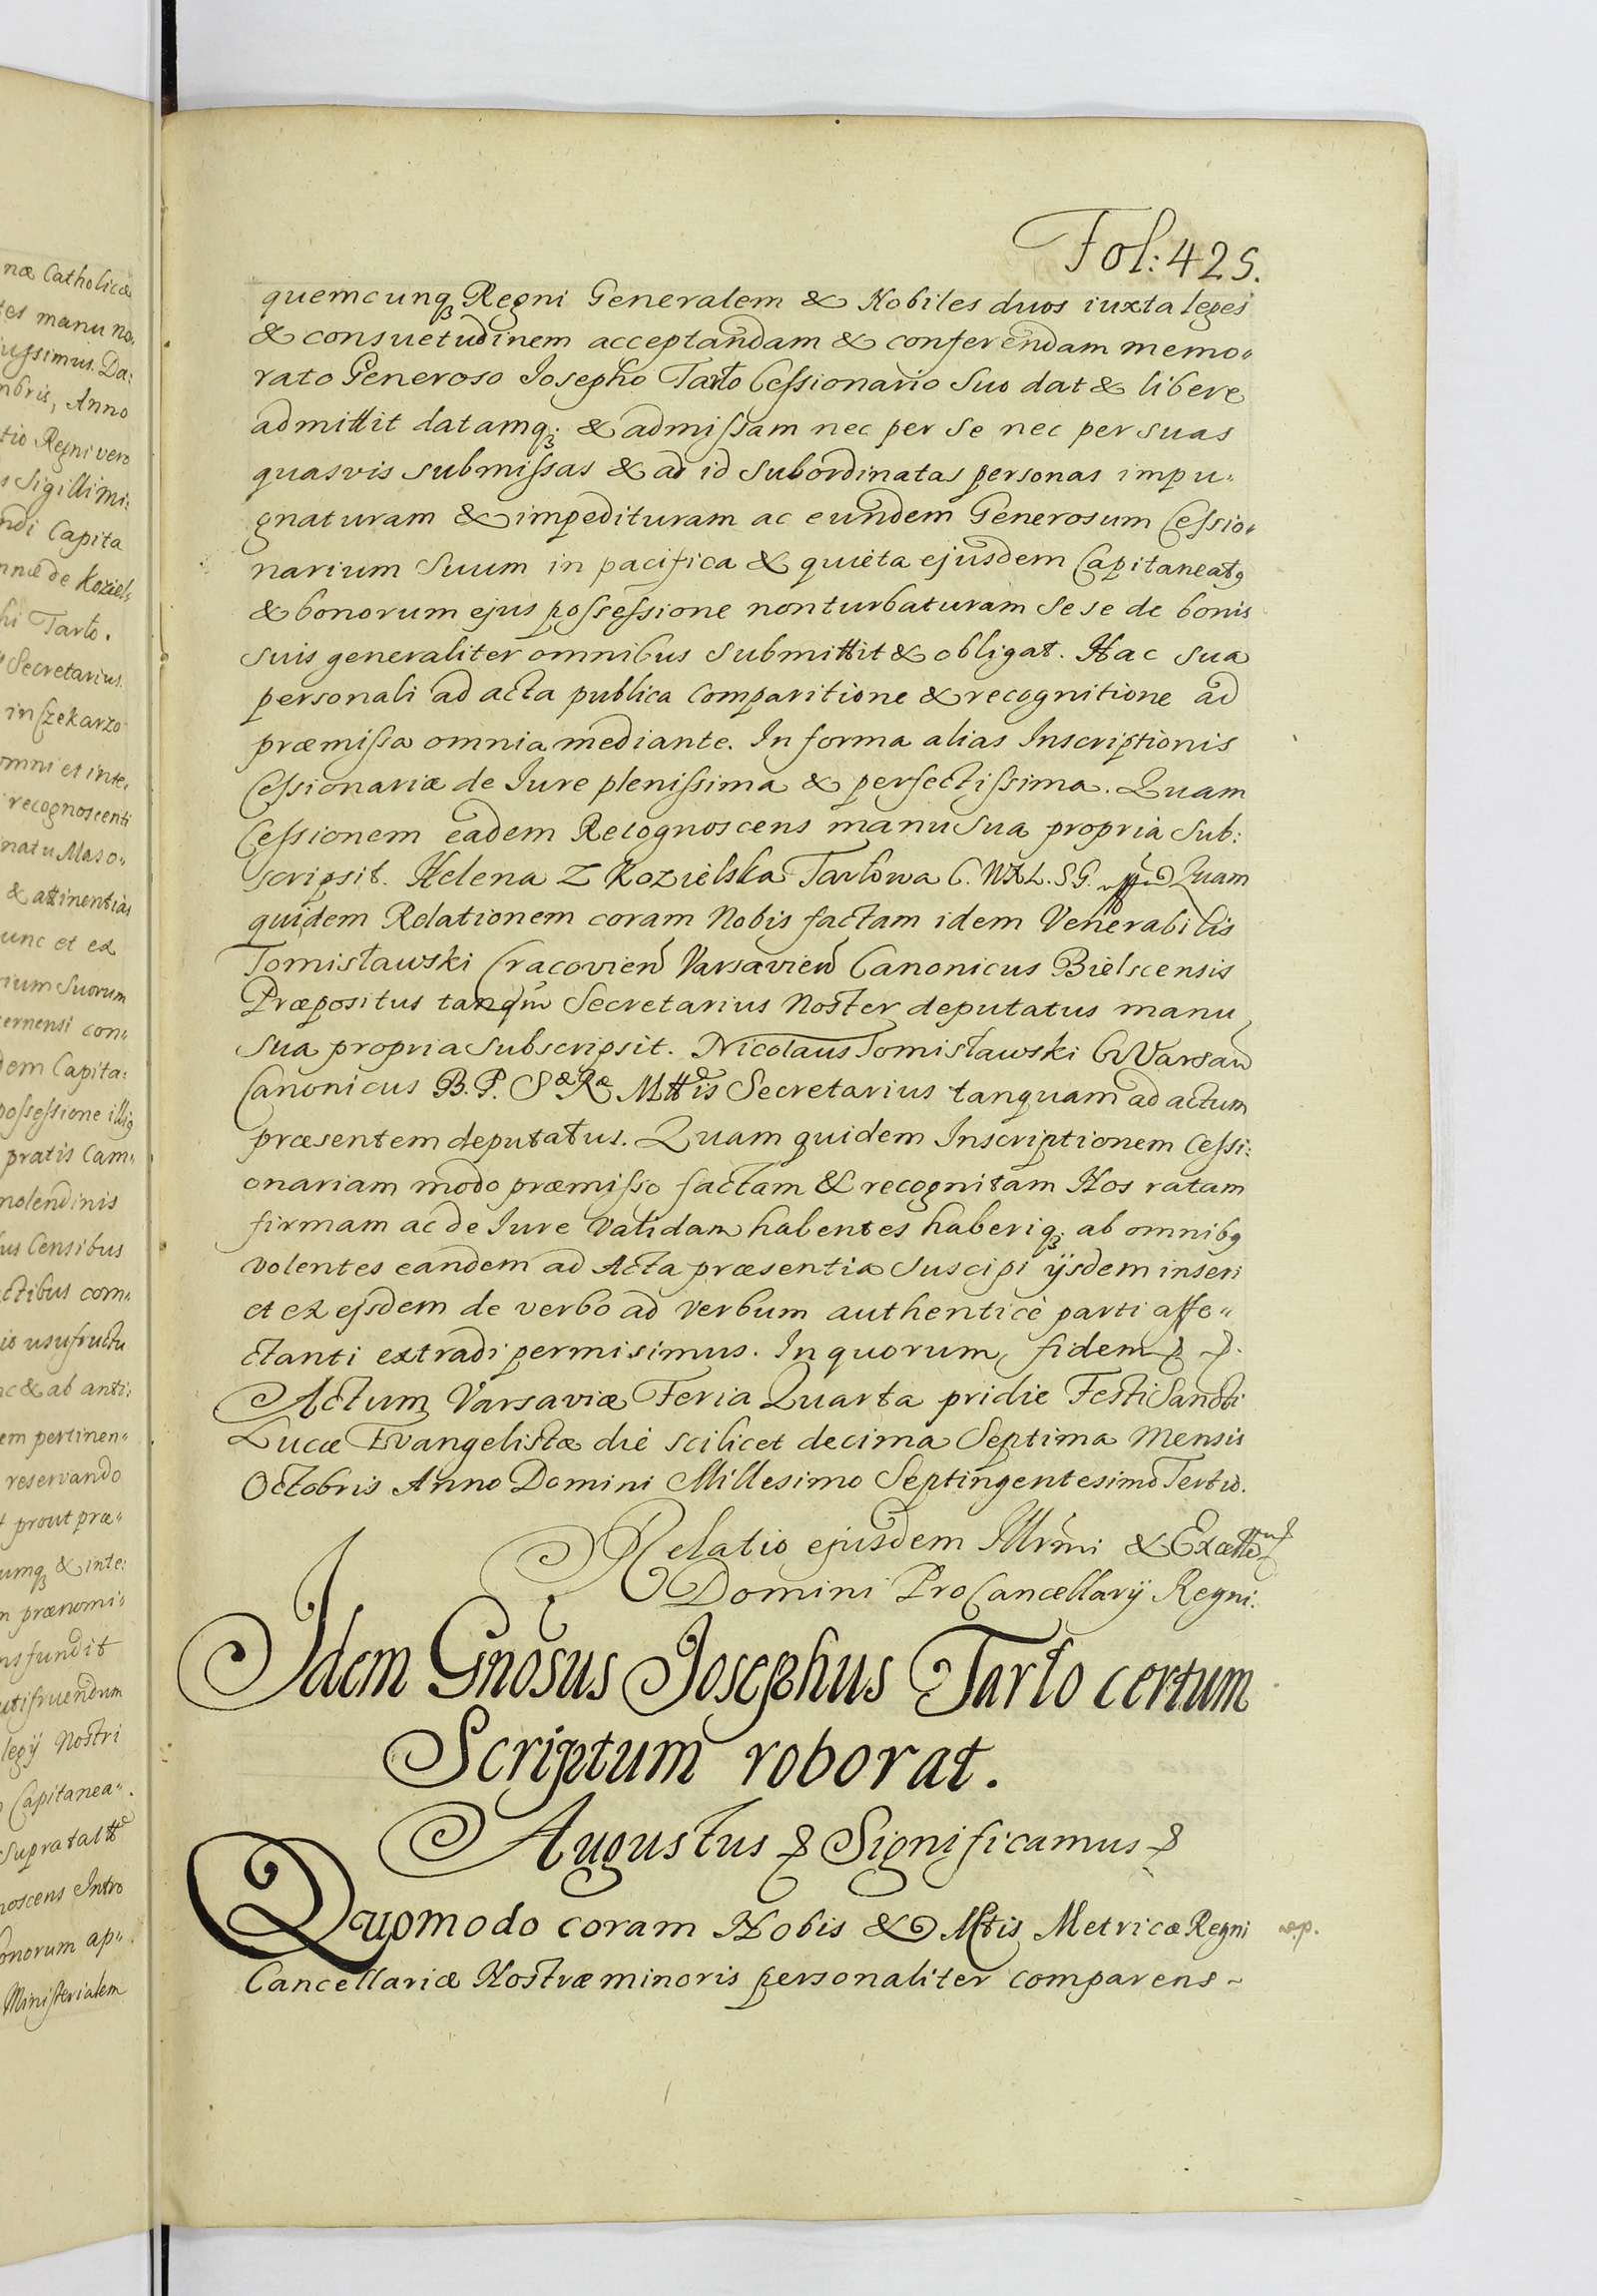 næ Catholicæ
tes manu no,
iussimus. Da:
mbris, Anno
tio Regni vero
s Sigilli mi:
ndi Capita
nnæ de Koziel,
hi Tarło.
Secretarius.
in Szekarzo
omni et inte,
recognoscenti
natu Maso,,
& attinentias
unc et ex
rium Suorum
ernensi con,,
dem Capita:
possessione illig
pratis Cam,,
molendinis
us Censibus
ctibus com,,
io usufructu
ac & ab anti:
em pertinen,,
reservando
t prout præ,,
umq3 & inte:
n prænomi,,
nsfundit
utifruendum
legÿ Nostri
Capitanea,,
Supratal
noscens Intro
onorum ap,,
Ministerialem
Fol: 425.
quemcunq3 Regni Generalem & Nobiles duos iuxta leges
& consuetudinem acceptandam & conferendam memo,,
rato Generoso Josepho Tarło Cessionario Suo dat & libere
admittit datamq3 & admissam nec per se nec per suas
quasvis submissas & ad id subordinatas personas impu,,
gnaturam & impedituram ac eundem Generosum Cessio,,
narium Suum in pacifica & quieta ejusdem Capitaneatg
& bonorum ejus possessione non turbaturam se se de bonis
suis generaliter omnibus submittit & obligat. Hac sua
personali ad acta publica comparitione & recognitione ad
præmissa omnia mediante. In forma alias Inscriptionis
Cessionariæ de Jure plenissima & perfectissima. Quam
Cessionem eadem Recognoscens manu sua propria sub:
scripsit. Helena Z Kozielska Tarłowa C. W X L. S G. Quam
quidem Relationem coram Nobis factam idem Venerabilis
Tomisławski Cracovien Varsavien Canonicus Bielscensis
Præpositus tanqm Secretarius Noster deputatus manu
sua propria subscripsit. Nicolaus Tomisławski Varsav
Canonicus B. P. Sæ Ræ Mttis Secretarius tanquam ad actum
præsentem deputatus. Quam quidem Inscriptionem Cessi:
onariam modo præmisso factam & recognitam Nos ratam
firmam ac de Jure validam habentes haberiq3 ab omnibg
volentes eandem ad Acta præsentia suscipi ÿsdem inseri
et ex ejsdem de verbo ad verbum authenticè parti affe,,
ctanti extradi permisimus. In quorum fidem
Actum Varsaviæ Feria Quarta pridie Festi Sancti
Lucæ Evangelistæ die scilicet decima Septima Mensis
Octobris Anno Domini Millesimo Septingentesimo Tertio.
Relatio ejusdem Illrmi &
Domini ProCancellarÿ Regni.
Idem Gnosus Josephus Tarło certum
Scriptum roborat.
Augustus Significamus
Quomodo coram Nobis & Actis Metricæ Regni
Cancellariæ Nostræ minoris personaliter comparens